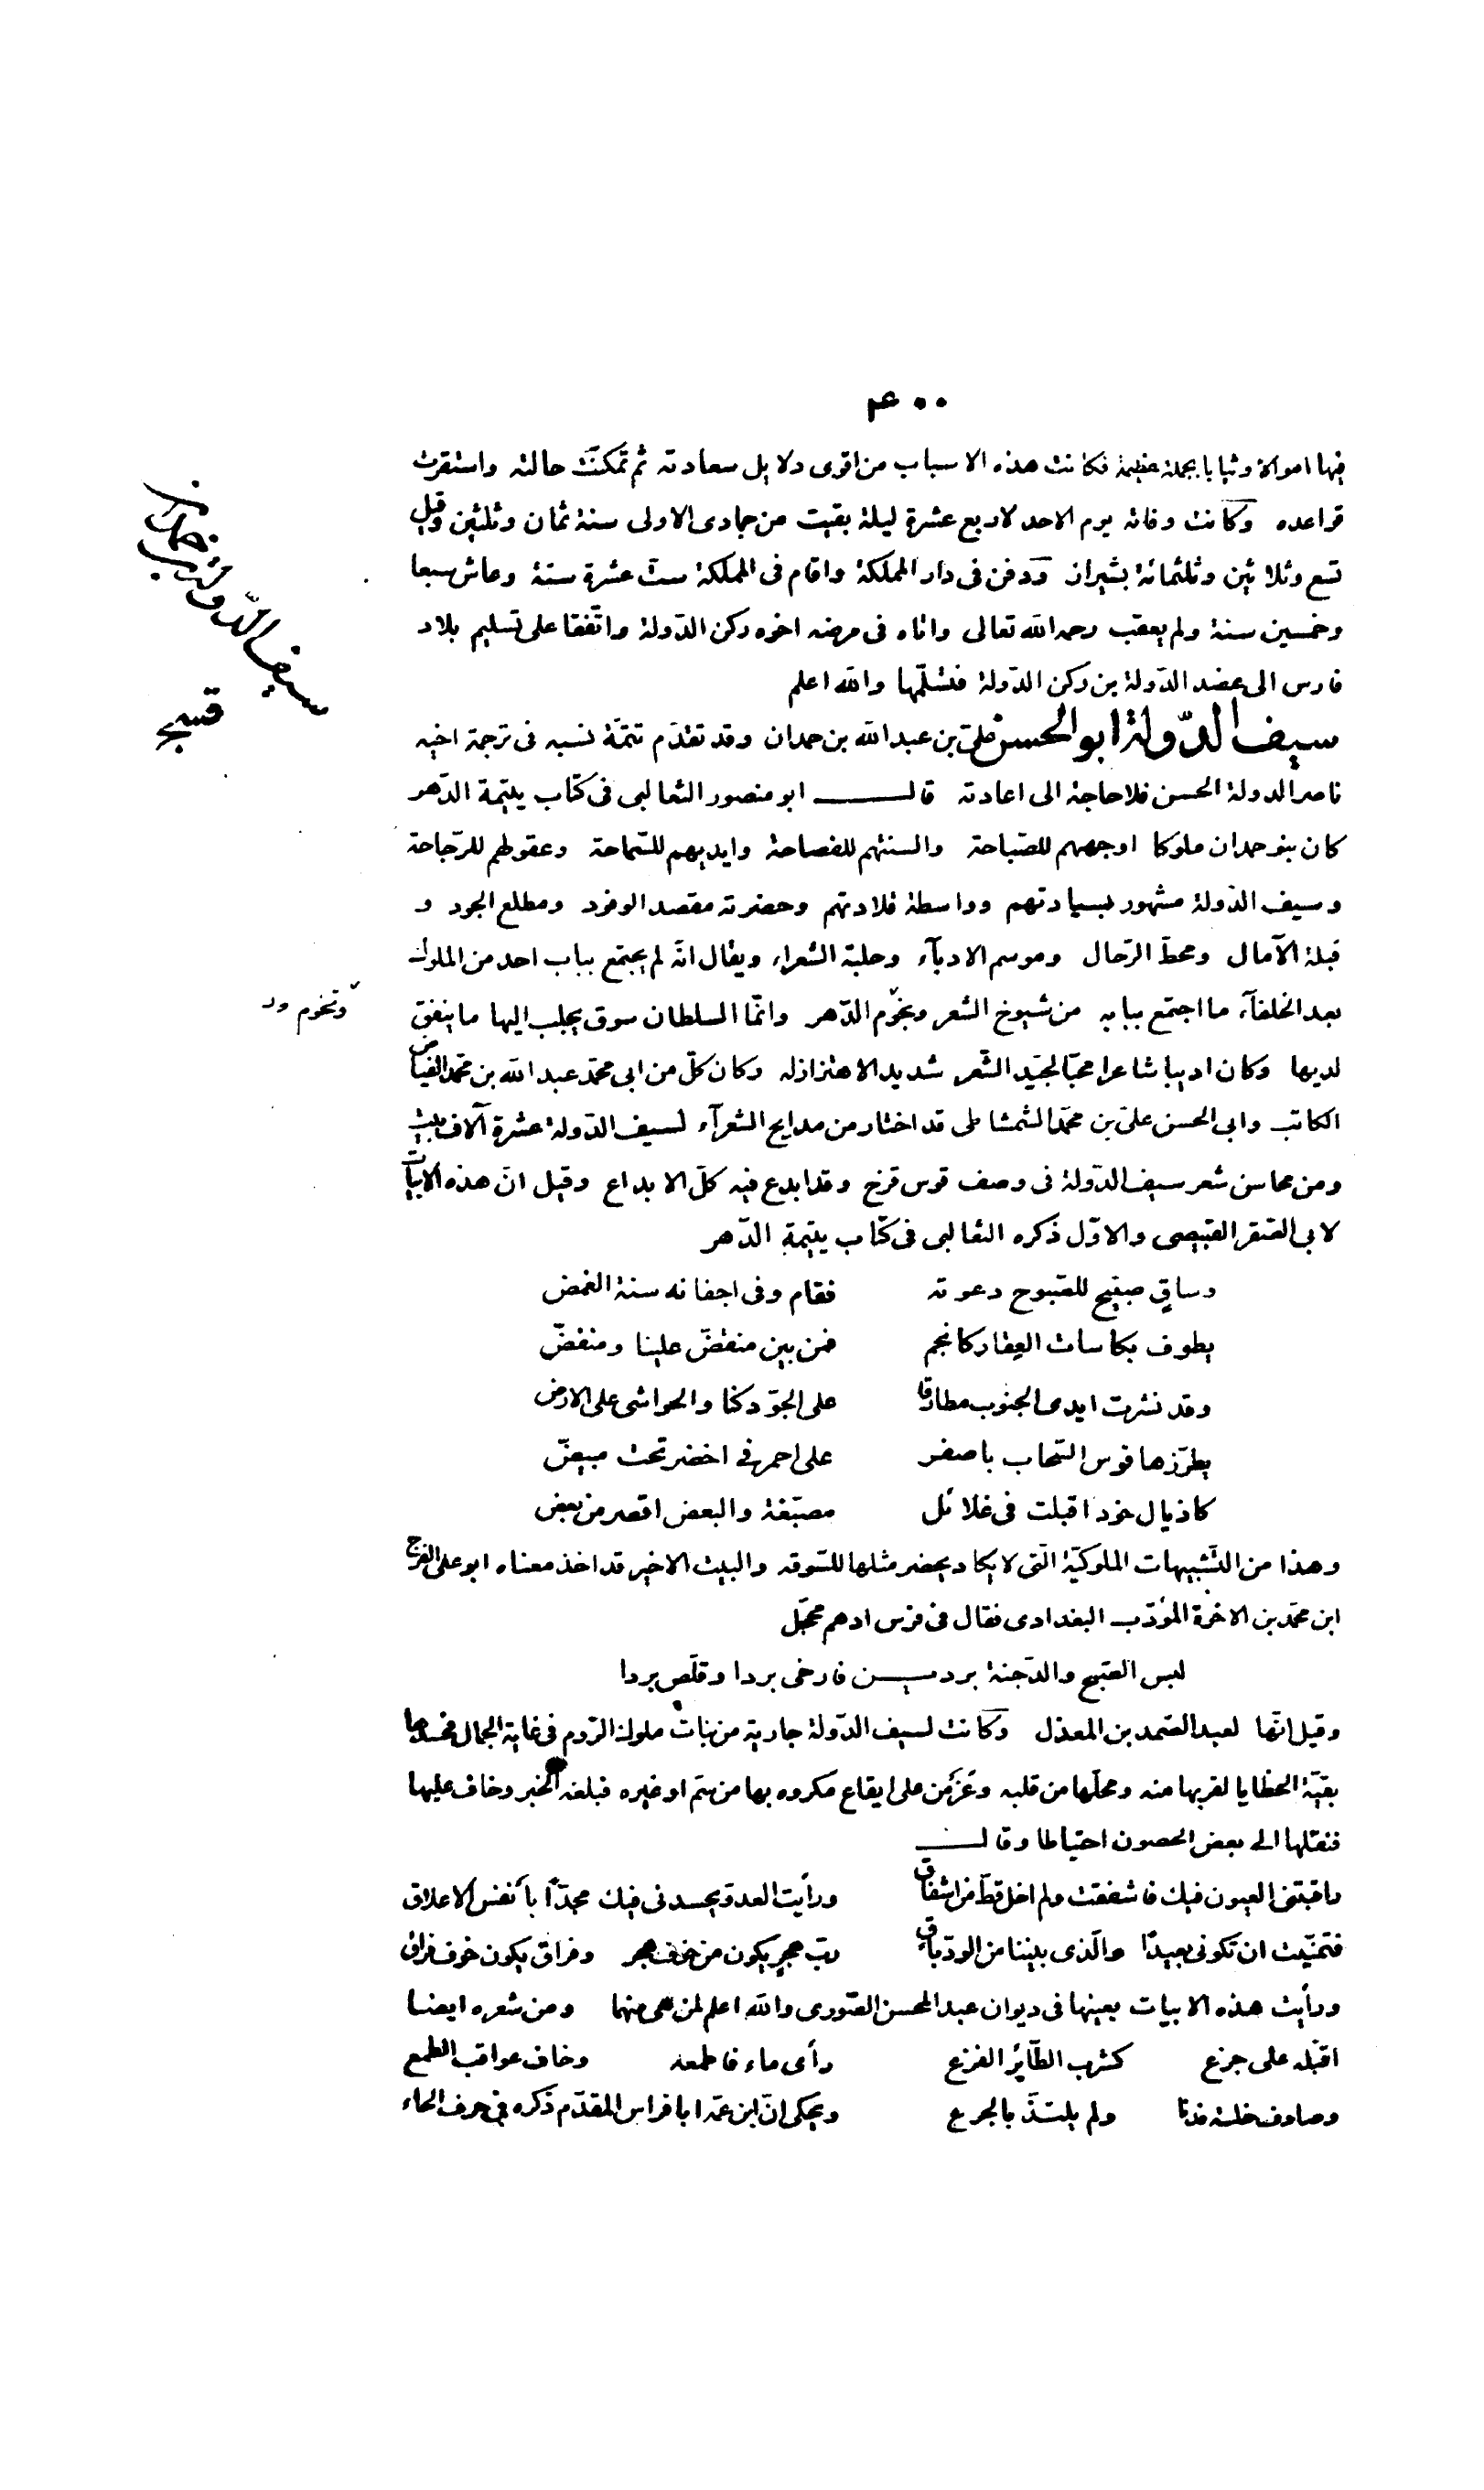 ۴۰۰
فيها اموالا وثيابا بجملة عظيمة فكانت هذه الاسباب من اقوى دلايل سعادته ثم تمكنت حالته واستقرت
قواعده وكانت وفاته يوم الاحد لاربع عشرة ليلة بقيت من جمادى الاولى سنة ثمان وثلثين وقيل
تسع وثلاثين وثلثمائة بشيراز ودفن فى دار المملكة واقام فى المملكة ست عشرة سنة وعاش سبعا
وخمسين سنة ولم يعقب رحمه الله تعالى واتاه فى مرضه اخوه ركن الدّولة واتّفقا على تسليم بلاد
فارس الى عضد الدّولة بن ركن الدّولة فتسلّمها والله اعلم
سيف الدّولة ابو الحسن علىّ بن عبد الله بن حمدان وقد تقدّم تتمّة نسبه فى ترجمة اخيه
ناصر الدولة الحسن فلا حاجة الى اعادته قال ابو منصور الثعالبى فى كتاب يتيمة الدّهر
كان بنو حمدان ملوكا اوجههم للصّباحة والسنتهم للفصاحة وايديهم للسّماحة وعقولهم للرّجاحة
وسيف الدّولة مشهور بسيادتهم وواسطة قلادتهم وحضرته مقصد الوفود ومطلع الجود و
قبلة الآمال ومحطّ الرّحال وموسم الادبآء وحلبة الشعراء ويقال انّه لم يجتمع بباب احد من الملوك
بعد الخلفآء ما اجتمع ببابه من شيوخ الشعر ونجوم الدّهر وانّما السلطان سوق يجلب اليها ما ينفق
لديها وكان اديبا شاعرا محبّا لجيّد الشّعر شديد الاهتزاز له وكان كلّ من ابى محمّد عبد الله بن محمّد الفيّاض
الكاتب وابى الحسن علىّ بن محمّد الشمشاطى قد اختار من مدايح الشعرآء لسيف الدّولة عشرة آلاف بيت
ومن محاسن شعر سيف الدّولة فى وصف قوس قزح وقد ابدع فيه كلّ الابداع وقيل انّ هذه الابيات
لابى الصّقر القبيصى والاوّل ذكره الثعالبى فى كتاب يتيمة الدّهر
وساقٍ صبيح للصّبوح دعوته فقام وفى اجفانه سنة الغمض
يطوف بكاسات العقار كانجم فمن بين منقضّ علينا ومنفضّ
وقد نشرت ايدى الجنوب مطارفا على الجوّ دكنا والحواشى على الارض
يطرّزها قوس السّحاب باصفر على احمر فى اخضر تحت مبيضّ
كاذيال خود اقبلت فى غلائل مصبّغة والبعض اقصر من بعض
وهذا من التّشبيهات الملوكيّة الّتى لا يكاد يحضر مثلها للسّوقه والبيت الاخير قد اخذ معناه ابو على الفرج
ابن محمّد بن الاخوة المؤدّب البغدادى فقال فى فرس ادهم محجّل
لبس الصّبح والدّجنة بردين فارخى بردا وقلّص بردا
وقيل انّها لعبد الصّمد بن المعذل وكانت لسيف الدّولة جارية من بنات ملوك الرّوم فى غاية الجمال فحسدها
بقيّة الحظايا لقربها منه ومحلّها من قلبه وعزمن على ايقاع مكروه بها من سمّ او غيره فبلغه الخبر وخاف عليها
فنقلها الى بعض الحصون احتياطا وقال
راقبتنى العيون فيك فاشفقت ولم اخل قطّ من اشفاق ورأيت العدوّ يحسدنى فيك مجدّا بأنفس الاعلاق
فتمنّيت ان تكونى بعيدًا والّذى بيننا من الودّ باق ربّ هجرٍ يكون من خوف هجر وفراق يكون خوف فراق
ورأيت هذه الابيات بعينها فى ديوان عبد المحسن الصّورى والله اعلم لمن هى منهما ومن شعره ايضا
اقبّله على جزع كشرب الطّاير الفزع رأى ماء فاطمعه وخاف عواقب الطمع
وصادف خلسة فدنا ولم يلتذّ بالجرع ويحكى انّ ابن عمّه ابا فراس المقدّم ذكره فى حرف الحاء
سيف الدّولة بن حمدان